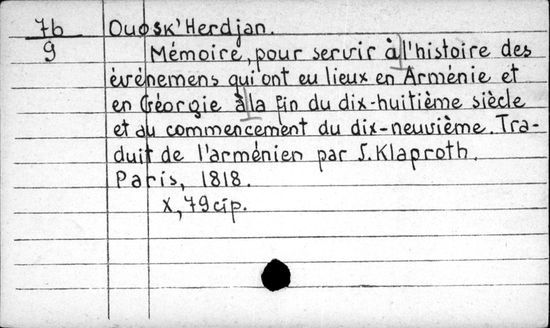 76 Ouosk'Herdjan.
9 Mémoire, pour servir à l'histoire des
événemens qui ont eu lieux en Arménie et
en Géorgie à la fin du dix-huitième siècle
et au commencement du dix-neuvième. Tra-
duit de l'arménien par J. Klaproth.
Paris, 1818.
X, 79 cip.